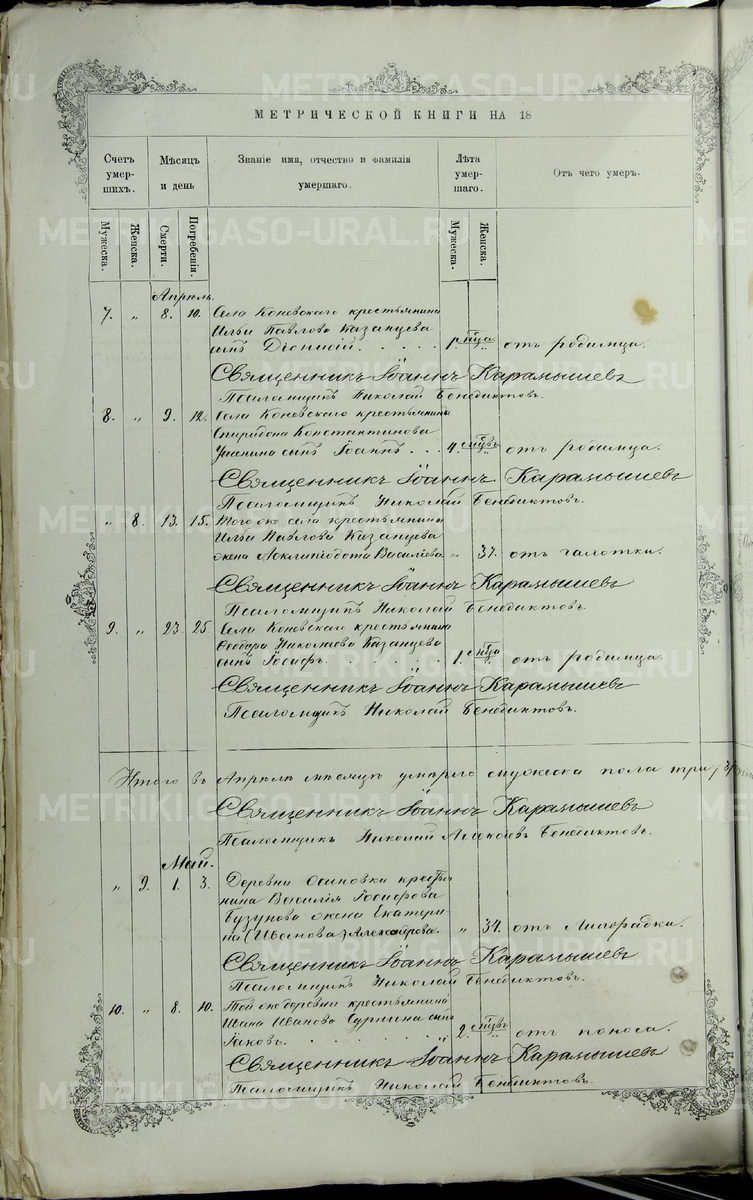 METRIKI.GASO-URAL.RU
МЕТРИЧЕСКОЙ КНИГИ НА 18
Счетъ умерших. Мѣсяцъ и день Званіе имя, отчество и фамилія умершаго. Лѣта умершаго. Отъ чего умеръ.
Мужеска. Женска. Смерти. Погребенія. Мужеска. Женска.
Апрѣль.
7. „ 8. 10. Села Коневскаго крестьянина
Ильи Павлова Казанцева
сынъ Діонисій. 1. м-ца от родимца.
Священникъ Іоаннъ Карамышевъ
Псаломщикъ Николай Бенедиктовъ.
8. „ 9. 12. Села Коневскаго крестьянина
Спиридона Константинова
сынъ Іоаннъ. 4. м-цвъ отъ родимца.
Священникъ Іоаннъ Карамышевъ
Псаломщикъ Николай Бенедиктовъ.
„ 8. 13. 15. Того же села крестьянина
Ильи Павлова Казанцева
жена Асклипіодота Василіева „ 37. отъ чахотки.
Священникъ Іоаннъ Карамышевъ
Псаломщикъ Николай Бенедиктовъ.
9. „ 23. 25 Села Коневскаго крестьянина
Ѳеодора Николаева Казанцева
сынъ Іосифъ. 1. м-ца отъ родимца.
Священникъ Іоаннъ Карамышевъ
Псаломщикъ Николай Бенедиктовъ.
Итого въ Апрѣлѣ мѣсяцѣ умерло мужеска пола три,
Священникъ Іоаннъ Карамышевъ
Псаломщикъ Николай Алексѣевъ Бенедиктовъ.
Май.
„ 9. 1. 3. Деревни Осиновки крестья-
нина Василія Іосифова
Бузунова жена Екатери-
на (Иванова) Александрова. „ 34. отъ Лихорадки.
Священникъ Іоаннъ Карамышевъ
Псаломщикъ Николай Бенедиктовъ.
10. „ 8. 10. Той же деревни крестьянина
Ивана Иванова Сурнина сынъ
Іаковъ. 2. м-цвъ отъ поноса.
Священникъ Іоаннъ Карамышевъ
Псаломщикъ Николай Бенедиктовъ.